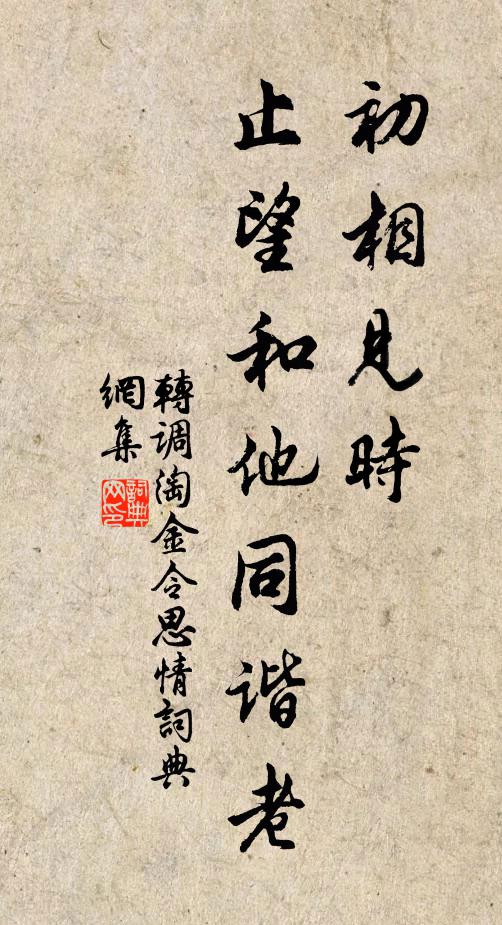 初相見時
止望和他同谐老
轉調淘金令思情詞典
網集
詞典
网印